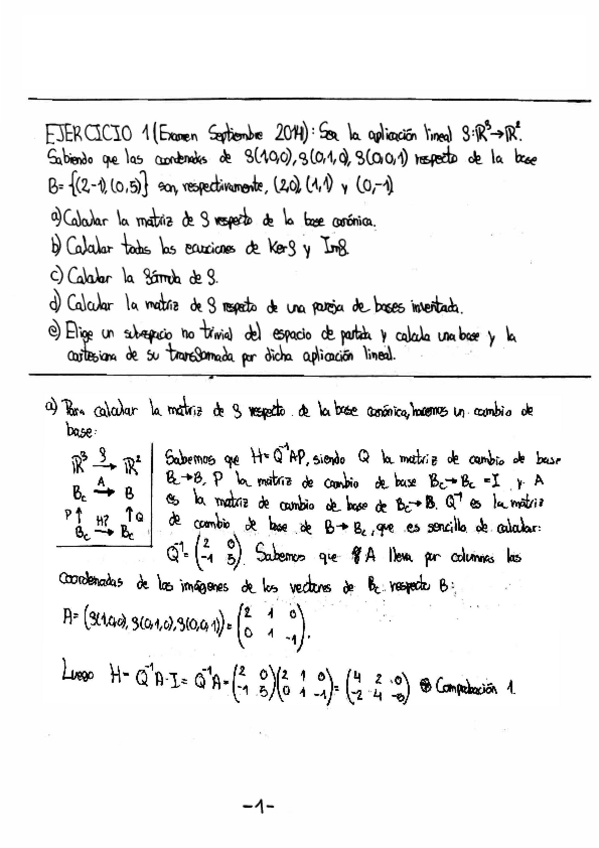 EJERCICIO 1 (Examen Septiembre 2014): Sea la aplicación lineal f: ℝ³→ℝ².
Sabiendo que las coordenadas de f(1,0,0), f(0,1,0), f(0,0,1) respecto de la base
B= {(2,-1), (0,5)} son, respectivamente, (2,0), (1,1) y (0,-1)
a) Calcular la matriz de f respecto de la base canónica.
b) Calcular todas las ecuaciones de Kerf y Imf.
c) Calcular la fórmula de f.
d) Calcular la matriz de f respecto de una pareja de bases inventada.
e) Elige un subespacio no trivial del espacio de partida y calcula una base y la
cartesiana de su transformada por dicha aplicación lineal.
a) Para calcular la matriz de f respecto de la base canónica, hacemos un cambio de
base:
ℝ³ f→ ℝ²
Bc A→ B
P↑ H? ↑Q
Bc → Bc
Sabemos que H=Q⁻¹AP, siendo Q la matriz de cambio de base
Bc→B, P la matriz de cambio de base Bc→Bc =I y A
es la matriz de cambio de base de Bc→B. Q⁻¹ es la matriz
de cambio de base de B→Bc, que es sencilla de calcular:
Q⁻¹= (2 0 / -1 5). Sabemos que A lleva por columnas las
coordenadas de las imágenes de los vectores de Bc respecto B:
A= (f(1,0,0), f(0,1,0), f(0,0,1)) = (2 1 0 / 0 1 -1).
Luego H= Q⁻¹A·I = Q⁻¹A = (2 0 / -1 5)(2 1 0 / 0 1 -1) = (4 2 0 / -2 4 -5) Comprobación 1.
-1-